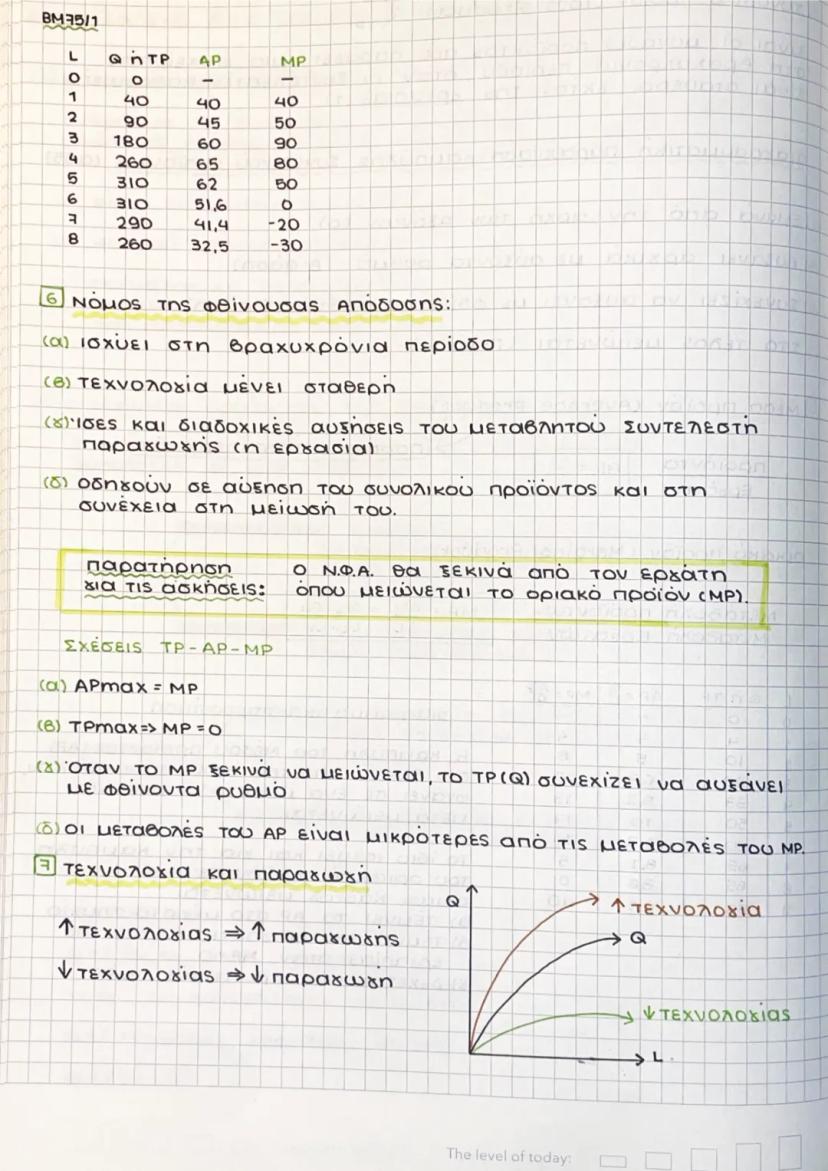 ΒΜ75/1
L Q ή TP AP MP
0 0 – –
1 40 40 40
2 90 45 50
3 180 60 90
4 260 65 80
5 310 62 50
6 310 51,6 0
7 290 41,4 -20
8 260 32,5 -30
6 Νόμος της φθίνουσας απόδοσης:
(α) ισχύει στη βραχυχρόνια περίοδο
(β) τεχνολογία μένει σταθερή
(γ) Ίσες και διαδοχικές αυξήσεις του μεταβλητού συντελεστή
παραγωγής (η εργασία)
(δ) οδηγούν σε αύξηση του συνολικού προϊόντος και στη
συνέχεια στη μείωσή του.
παρατήρηση Ο Ν.Φ.Α. θα ξεκινά από τον εργάτη
για τις ασκήσεις: όπου μειώνεται το οριακό προϊόν (MP).
ΣΧέσεις TP-AP-MP
(α) APmax = MP
(β) TPmax=> MP=0
(γ) Όταν το MP ξεκινά να μειώνεται, το TP(Q) συνεχίζει να αυξάνει
με φθίνοντα ρυθμό
(δ) Οι μεταβολές του AP είναι μικρότερες από τις μεταβολές του MP.
7 Τεχνολογία και παραγωγή
↑ τεχνολογίας ⇒ ↑ παραγωγής
↓ τεχνολογίας ⇒ ↓ παραγωγή
Q
↑ τεχνολογία
Q
↓ τεχνολογίας
L
The level of today: